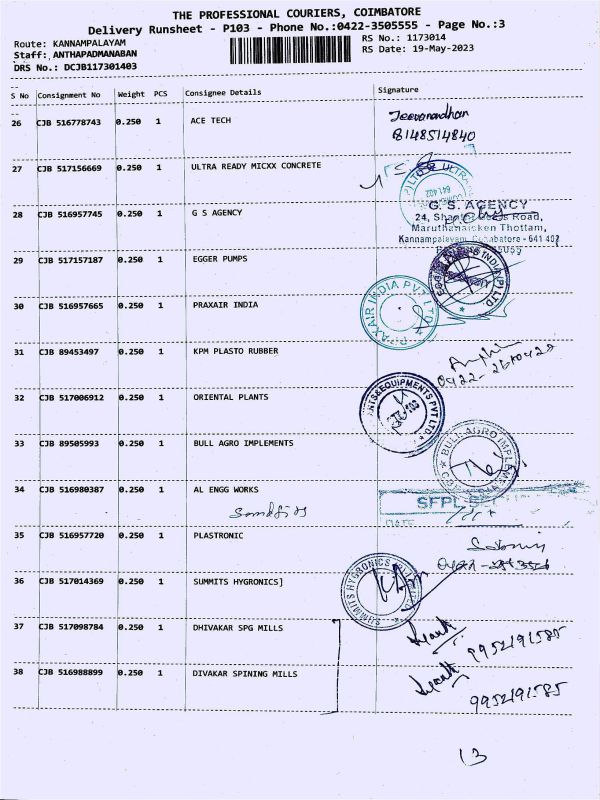 THE PROFESSIONAL COURIERS, COIMBATORE
Delivery Runsheet - P103 - Phone No.:0422-3505555 - Page No.:3
Route: KANNAMPALAYAM RS No.: 1173014
Staff: ANTHAPADMANABAN RS Date: 19-May-2023
DRS No.: DCJB117301403
S No Consignment No Weight PCS Consignee Details Signature
26 CJB 516778743 0.250 1 ACE TECH Jeevanandhan
8148514840
27 CJB 517156669 0.250 1 ULTRA READY MICXX CONCRETE
641 402
28 CJB 516957745 0.250 1 G S AGENCY G. S. AGENCY
24, Road,
Maruthanaicken Thottam,
Kannampalayam, Coimbatore - 641 402
29 CJB 517157187 0.250 1 EGGER PUMPS
30 CJB 516957665 0.250 1 PRAXAIR INDIA PRAXAIR INDIA PVT LTD
31 CJB 89453497 0.250 1 KPM PLASTO RUBBER
0422-2610420
32 CJB 517006912 0.250 1 ORIENTAL PLANTS NTS&EQUIPMENTS PVT LTD
33 CJB 89505993 0.250 1 BULL AGRO IMPLEMENTS BULL AGRO IMPLEMEN
34 CJB 516980387 0.250 1 AL ENGG WORKS SFPL
DATE
35 CJB 516957720 0.250 1 PLASTRONIC
36 CJB 517014369 0.250 1 SUMMITS HYGRONICS] SUMMITS HYGRONICS
37 CJB 517098784 0.250 1 DHIVAKAR SPG MILLS 9952191585
38 CJB 516988899 0.250 1 DIVAKAR SPINING MILLS 9952191585
13